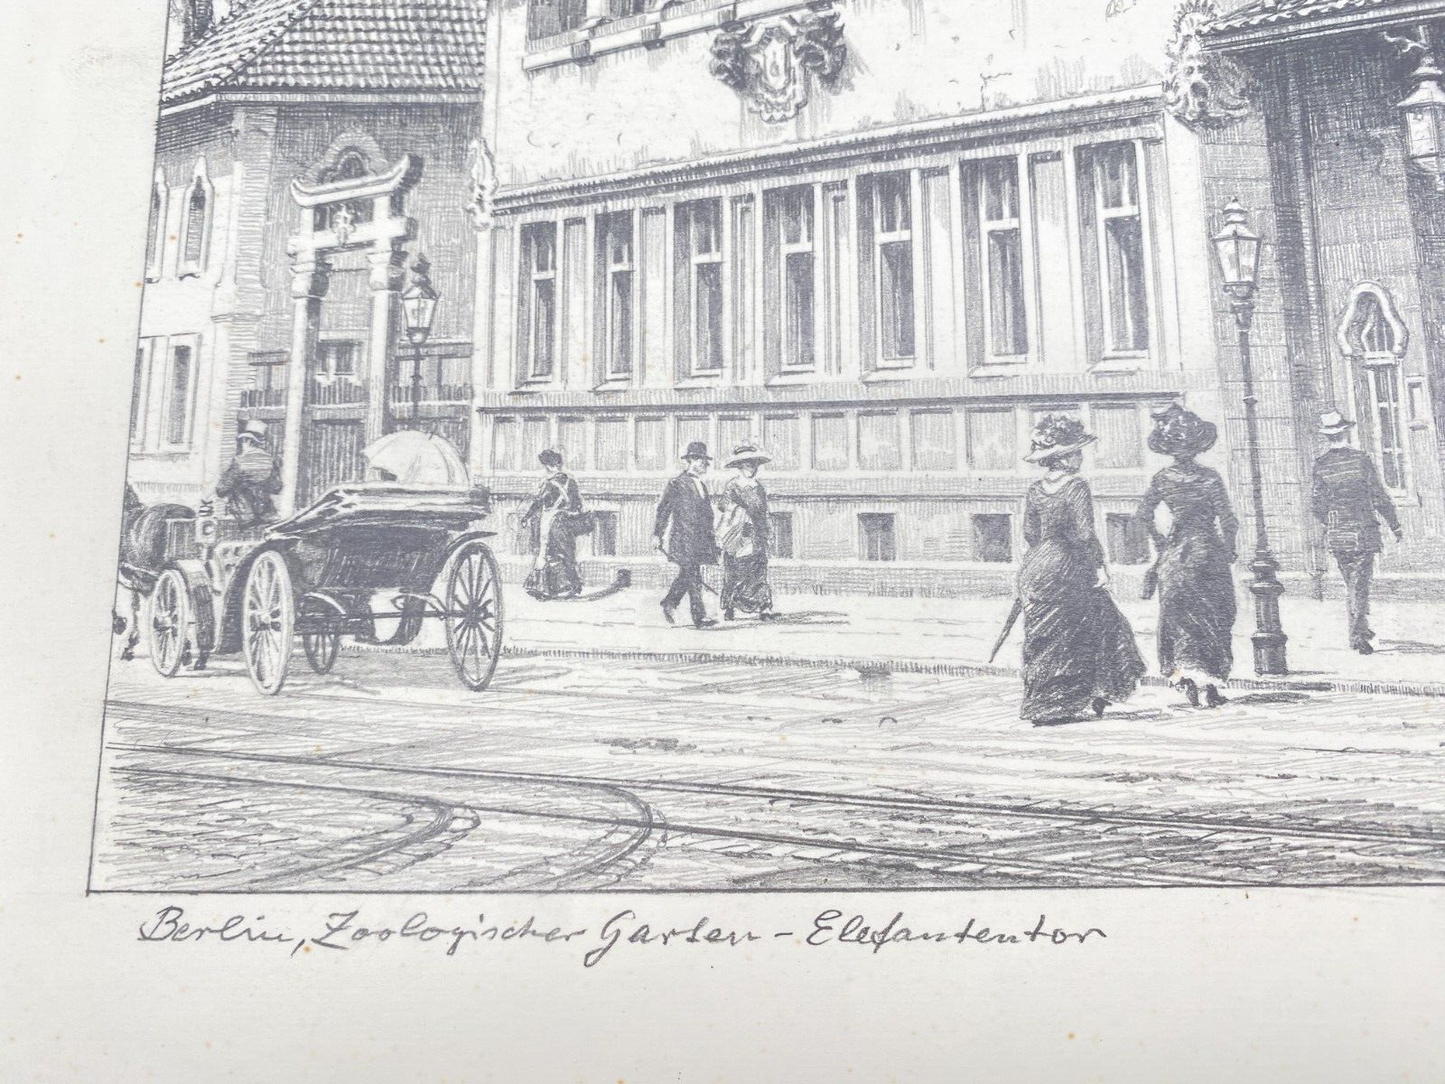 Berlin, Zoologischer Garten - Elefantentor